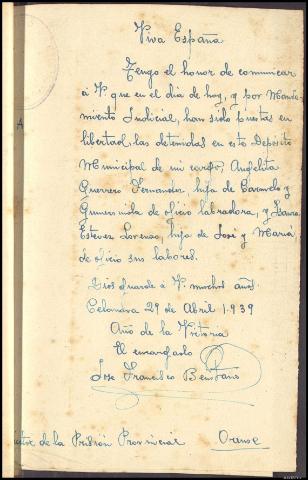 Viva España
Tengo el honor de comunicar
á V. que en el dia de hoy, y por Manda-
miento Judicial, han sido Puestas en
libertad, las detenidas en este Deposito
Municipal de mi cargo, Angelita
Guerrero Fernandez, hija de y
Gumersinda de oficio labradora, y Laura
Estevez Lorenzo, hija de José y Maria,
de oficio sus labores.
Dios guarde á V. muchos años.
Celanova 29 de Abril 1.939
Año de la Vitoria
El encargado
Jose Francisco
de la Prisión Provincial Orense
A